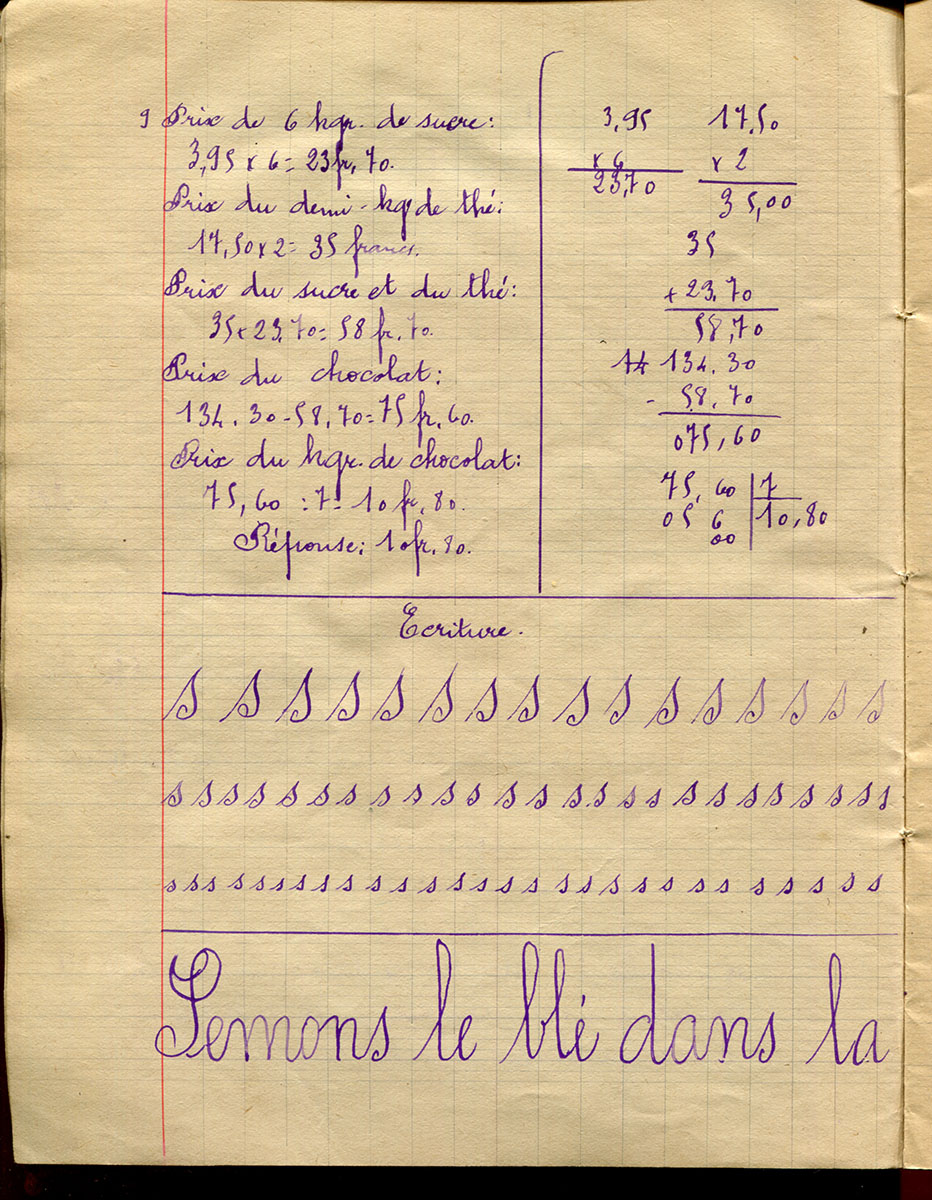 9 Prix de 6 kgr. de sucre:
3,95 x 6 = 23fr,70.
Prix du demi-kgr de thé:
17,50 x 2 = 35 francs.
Prix du sucre et du thé:
35 x 23,70 = 58 fr. 70.
Prix du chocolat:
134.30 - 58,70 = 75 fr. 60.
Prix du kgr. de chocolat:
75,60 : 7 = 10 fr. 80.
Réponse: 10fr. 80.
3,95 17,50
x 6 x 2
23,70 35,00
35
+ 23,70
58,70
14 134.30
- 58.70
075,60
75,60 7
05 6 10,80
00
Ecriture.
s s s s s s s s s s s s s s s s
s s s s s s s s s s s s s s s s s s s s s s s s s s
s s s s s s s s s s s s s s s s s s s s s s s s s s s s
Semons le blé dans la